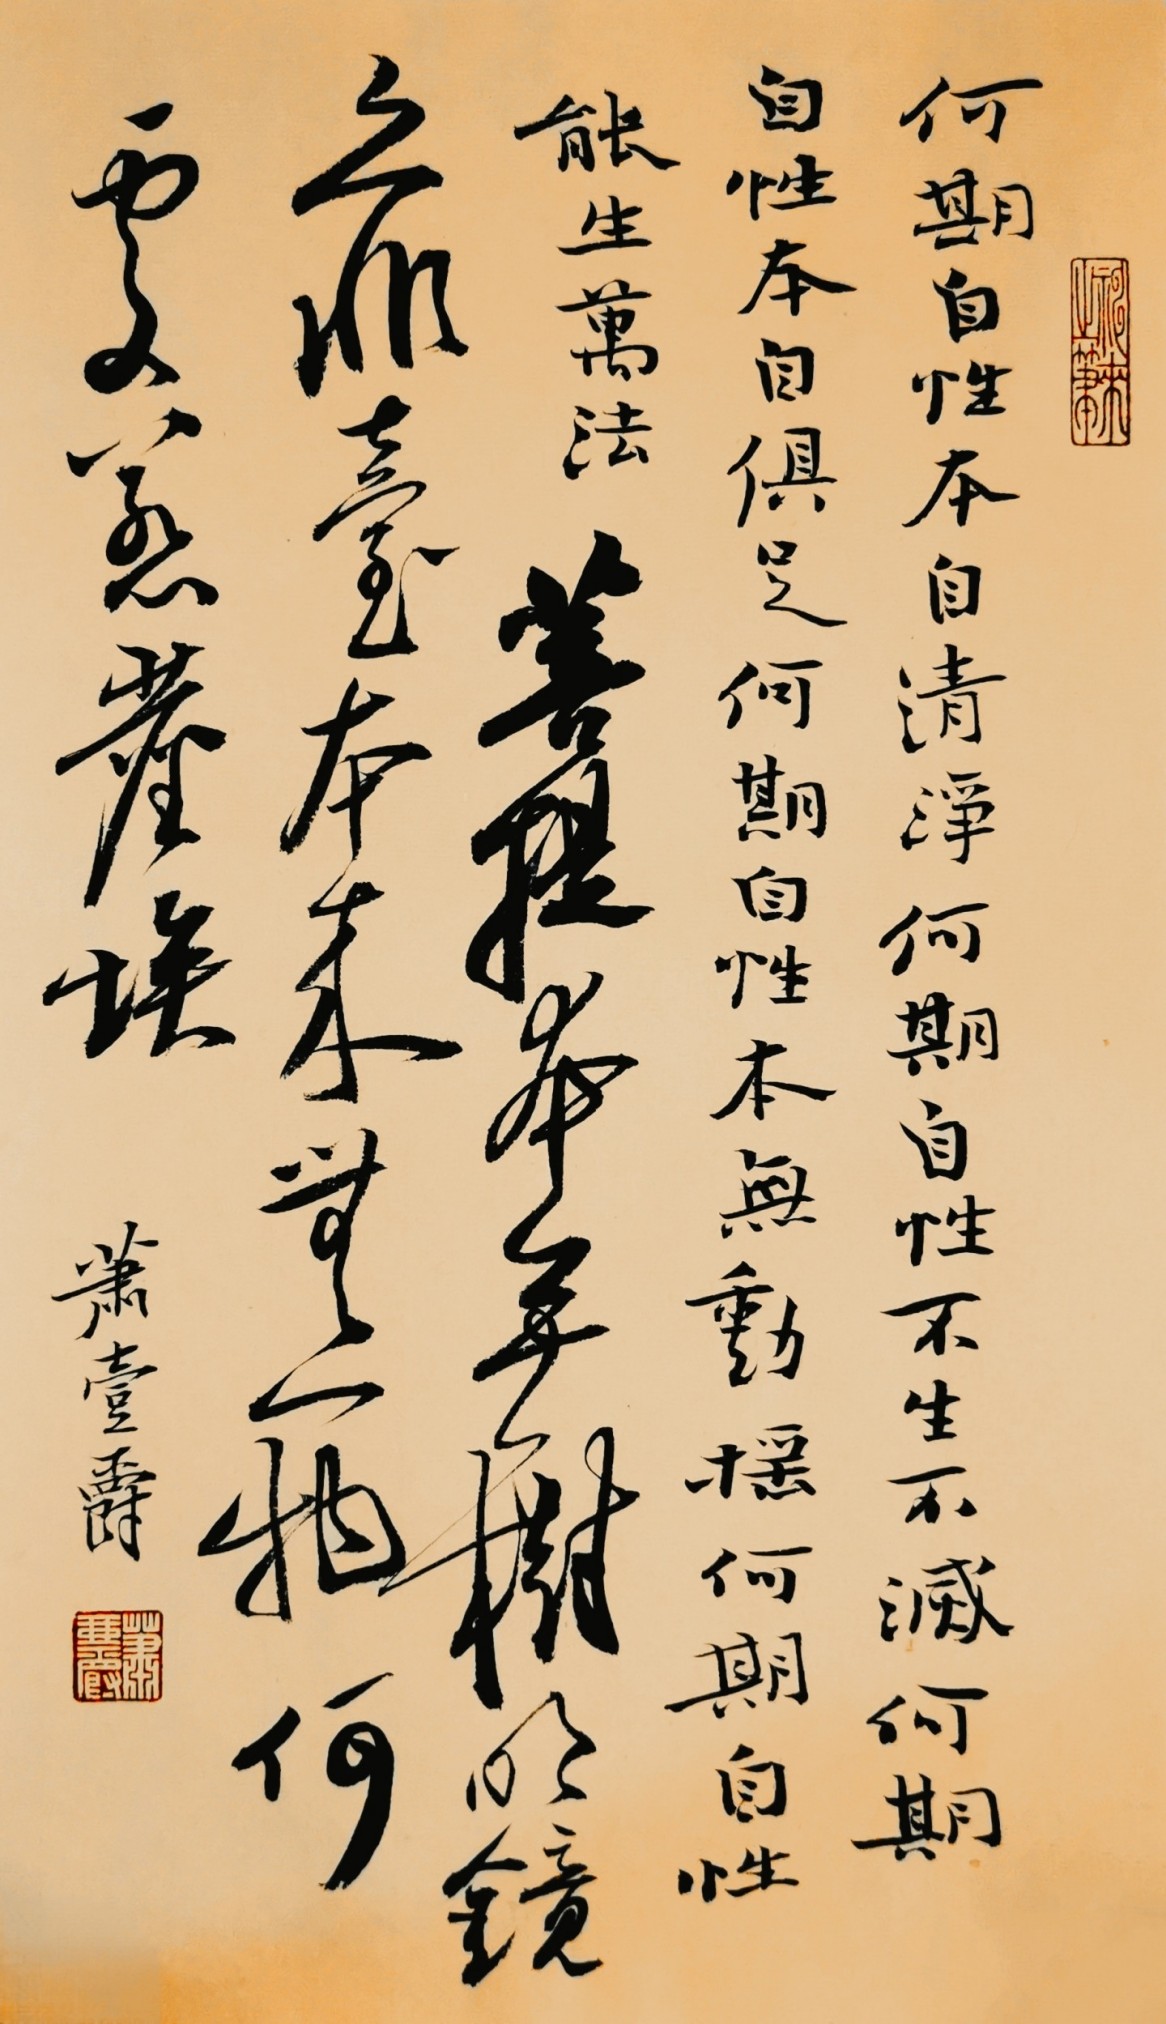 神來之筆
何期自性本自清淨何期自性不生不滅何期
自性本自俱足何期自性本無動搖何期自性
能生萬法
菩提本无樹明鏡
亦非臺本來無一物何
處惹塵埃
蕭壹爵
蕭壹爵